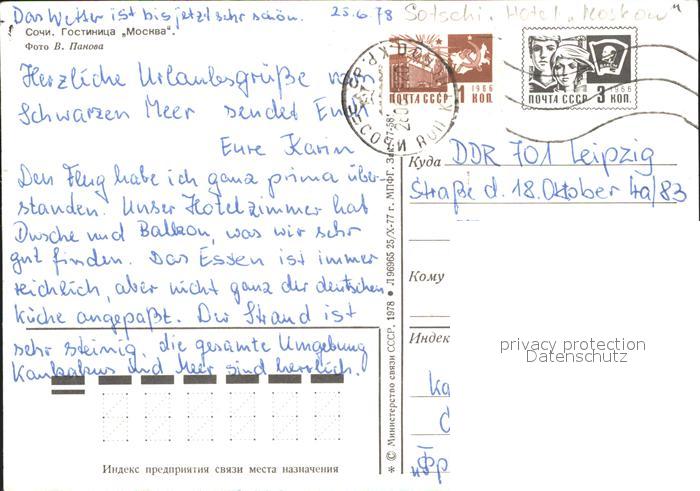 Das Wetter ist bis jetzt sehr schön. 25.6.78 Sotschi. Hotel „Moskow"
Сочи. Гостиница „Москва".
Фото В. Панова
Herzliche Urlaubsgrüße vom
Schwarzen Meer sendet Euch
Eure Karin
Den Flug habe ich ganz prima über-
standen. Unser Hotelzimmer hat
Dusche und Balkon, was wir sehr
gut finden. Das Essen ist immer
reichlich, aber nicht ganz der deutschen
Küche angepaßt. Der Strand ist
sehr steinig, die gesamte Umgebung
Kaukasus und Meer sind herrlich.
Индекс предприятия связи места назначения
* © Министерство связи СССР, 1978 • Л 96965 25/X-77 г. МПФГ. Зак. 77-58
ПОЧТА СССР 1 КОП. 1966
ПОЧТА СССР 3 КОП. 1966
СОЧИ
Куда DDR 701 Leipzig
Straße d. 18. Oktober 4a/83
Кому
Индек
privacy protection
Datenschutz